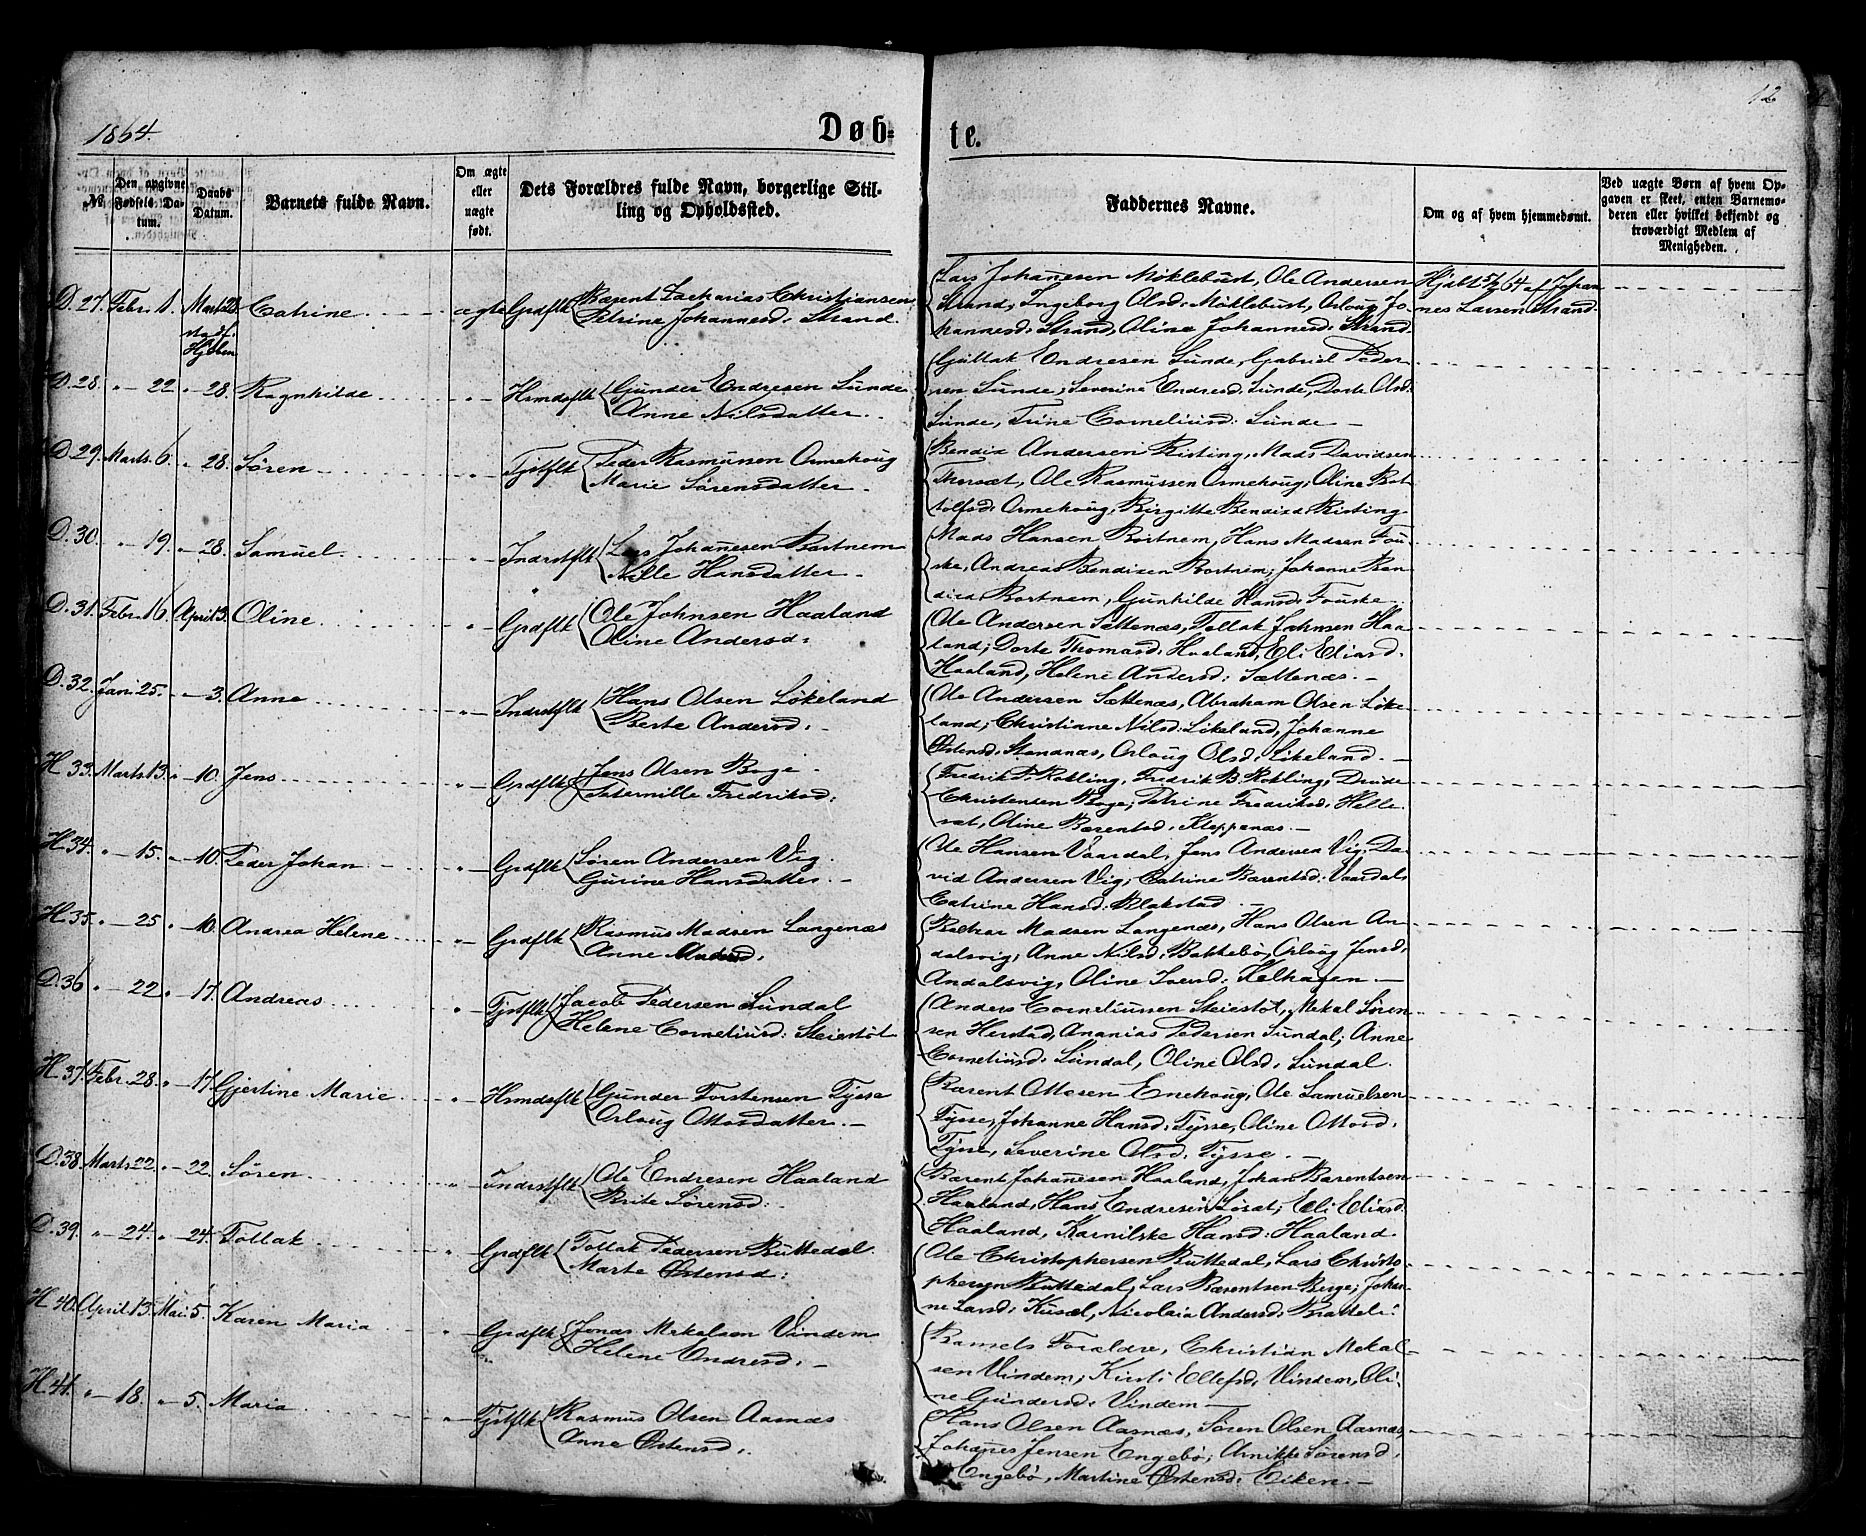 1864.
Døb=
te.
12
№
Den angivne Fødsels Datum.
Daabs Datum.
Barnets fulde Navn.
Om ægte eller uægte født.
Dets Forældres fulde Navn, borgerlige Stilling og Opholdssted.
Faddernes Navne.
Om og af hvem hjemmedømt.
Ved uægte Børn af hvem Opgaven er skeet, enten Barnemoderen eller hvilket bekjendt og troværdigt Medlem af Menigheden.
D. 27. Febr. 1. Marts 28 Catrine ægte Grdflk Bærent Zacharias Christiansen
Petrine Johannesd: Strand
Lars Johanesen Møklebust, Ole Andersen
Strand, Ingeborg Olsd: Møklebust, Orloug Jo-
hannesd: Strand, Oline Johannesd: Strand
Hjdbt af Johan
nes Larsen Strand
D. 28. " 22 " 28. Ragnhilde " Hsmdsflk Gunder Endresen Sunde
Anne Nilsdatter
Guttak Endresen Sunde, Gabriel Peder
sen Sunde; Severine Endresd: Sunde, Dorte Olsd:
Sunde, Trine Corneliusd: Sunde
D. 29. Marts 6. " 28. Søren " Tjstflk Peder Rasmussen Ormehoug
Marie Sørensdatter
Bendix Andersen Risting, Mads Davidsen
Thorsæt, Ole Rasmussen Ormehoug; Oline Bot
tolfsd: Ormehoug, Birgitte Bendixd: Risting
D. 30. " 19. " 28. Samuel " Indrstflk Lars Johanesen Bortnem
Nille Hansdatter
Mads Hansen Bortnem, Hans Madsen Fou-
ske, Andreas Bendixen Bortnem; Johanne Ben
dixd: Bortnem, Gunhilde Hansd: Fouske
D. 31. Febr. 16. April 3. Oline " Grdflk Ole Johnsen Haaland
Oline Andersd:
Ole Andersen Sættenæs, Tollak Johnsen Haa
land; Dorte Thomasd: Haaland, Eli Eliasd:
Haaland, Helene Andersd: Sættenæs.
D. 32. Jan: 25. " 3. Anne " Indrstflk Hans Olsen Løkeland
Berte Andersd:
Ole Andersen Sættenæs, Abraham Olsen Like
land; Christiane Nilsd: Likeland, Johanne
Østensd: Standnæs, Orloug Olsd: Likeland.
H. 33. Marts 13. " 10. Jens " Grdflk Jens Olsen Boge
Paternille Fredriksd:
Fredrik P. Rokling, Fredrik B. Rokling, Davide
Christensen Boge; Petrine Fredriksd: Helle
sæt, Oline Bærentsd: Kleppenæs.
H. 34. " 15. " 10. Peder Johan " Grdflk Søren Andersen Vig
Gurine Hansdatter
Ole Hansen Vaardal, Jens Andersen Vig, Da
vid Andersen Vig; Catrine Bærentsd: Vaardal,
Catrine Hansd: Blakstad
H. 35. " 25 " 10. Andrea Helene " Grdflk Rasmus Madsen Langenæs
Anne Andersd:
Madsen Langenæs, Hans Olsen An
dalsvig; Anne Nilsd: Bakkebø, Orloug Jensd:
Andalsvig, Oline Iversd: Kalhagen
D. 36 " 22 " 17. Andreas " Tjstflk Jacob Pedersen Sundal
Helene Corneliusd: Steiestøl
Anders Corneliussen Steiestøl, Mekal Søren
sen Herstad, Ananias Pedersen Sundal; Anne
Corneliusd: Sundal, Oline Olsd: Sundal.
H. 37. Febr. 28. " 17. Gjertine Marie " Hsmdsflk Gunder Torstensen Tysse
Orloug Ottosdatter
Bærent Ottosen Enehoug, Ole Samuelsen
Tysse; Johanne Hansd: Tysse, Oline Ottosd:
Tysse, Severine Olsd: Tysse.
D. 38. Marts 22. " 22. Søren " Indrstflk Ole Endresen Haaland
Brite Sørensd:
Bærent Johanesen Haaland, Johan Bærentsen
Haaland, Hans Endresen Løsæt; Eli Eliasd:
Haaland, Karnilske Hansd: Haaland
D. 39. " 24. " 24. Tollak " Grdflk Tollak Pedersen Buttedal
Marte Østensd:
Ole Christophersen Buttedal, Lars Christo
phersen Buttedal, Lars Bærentsen Berge; Johan
ne Larsd: Nicolaia Andersd:
H. 40. April 13. Mai 5. Karen Maria " Grdflk Jonas Mekalsen Vindem
Helene Andresd:
Barnets Forældre, Christian Mekal
sen Vindem; Kirsti Ellefsd: Vindem, Oli
ne Gundersd: Vindem
H. 41. " 18. " 5. Maria " Tjstflk Rasmus Olsen Aasnæs
Anne Østensd:
Hans Olsen Aasnæs, Søren Olsen Aasnæs
Johanes Jensen Engebø; Arnikke Sørensd:
Engebø, Martine Østensd: Eiken.